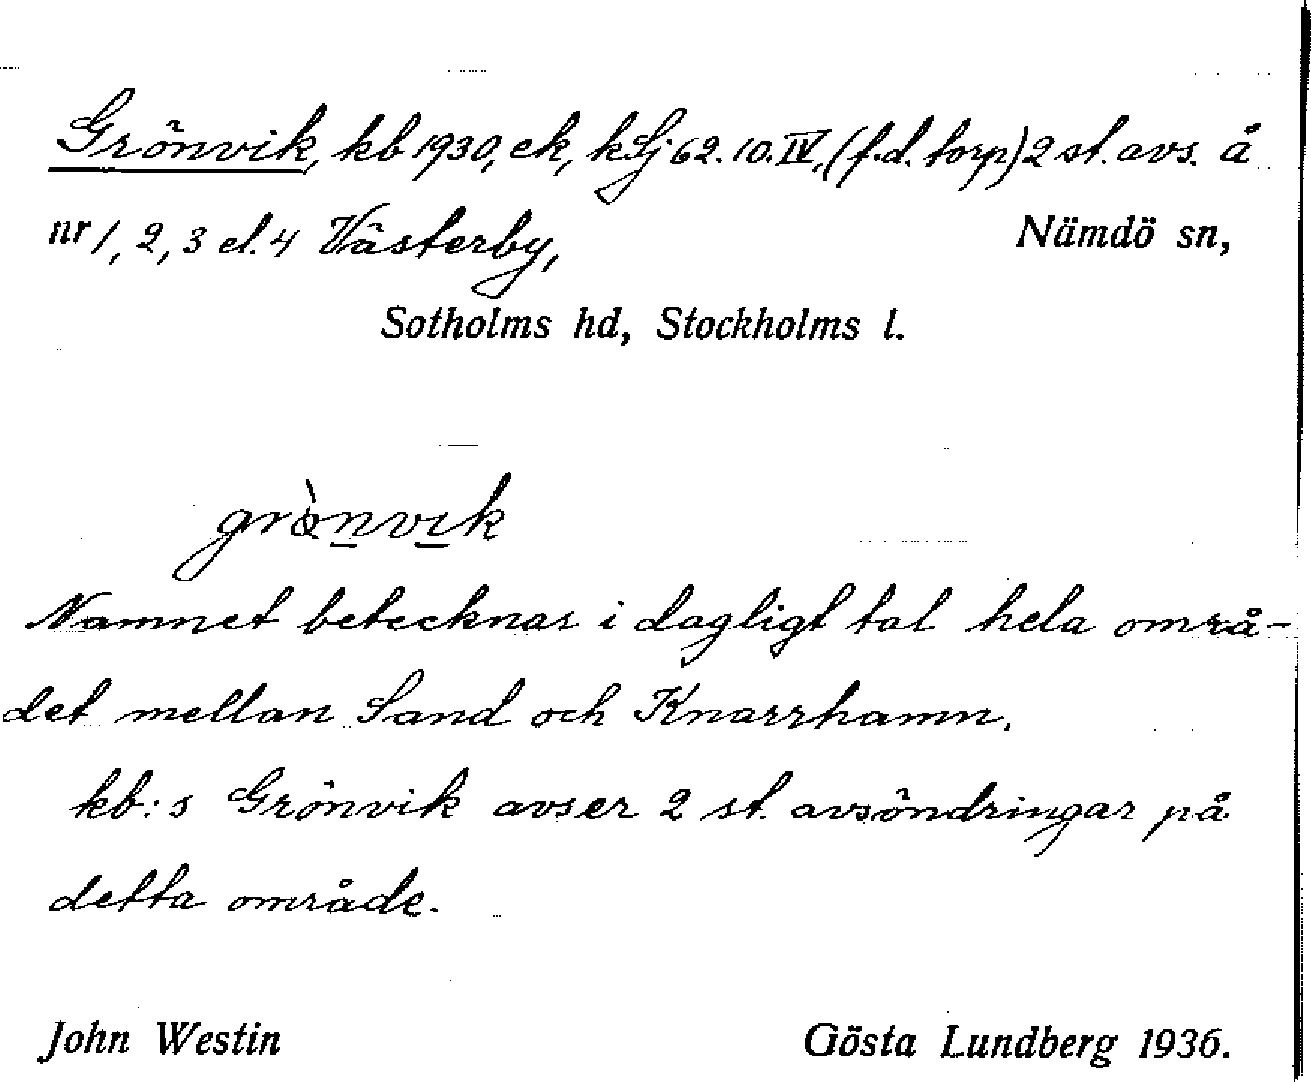 Grönvik, kb 1930, ek, kSj 62.10.IV, (f.d. torp) 2 st. avs. å
nr 1, 2, 3 el. 4 Västerby, Nämdö sn,
Sotholms hd, Stockholms l.
grònvik
Namnet betecknar i dagligt tal hela områ-
det mellan Sand och Knarrhamn.
kb:s Grönvik avser 2 st. avsöndringar på
detta område.
John Westin Gösta Lundberg 1936.